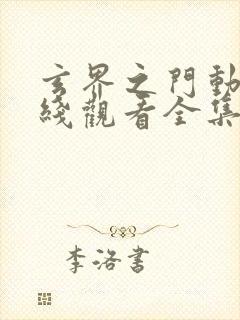 玄界之門動
綫觀看全集
李洛書